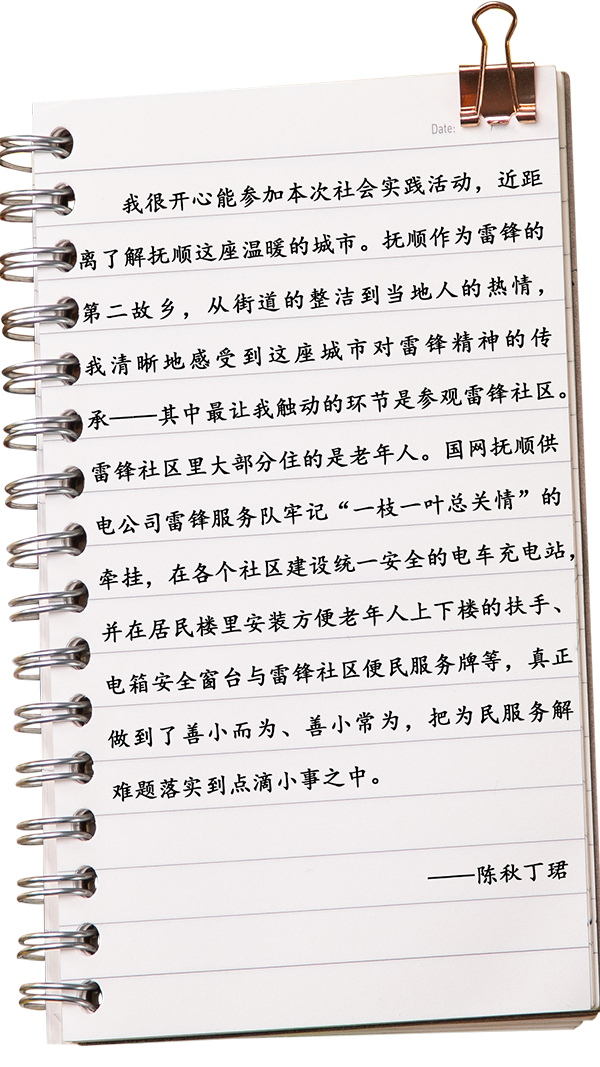 Date:
我很开心能参加本次社会实践活动，近距
离了解抚顺这座温暖的城市。抚顺作为雷锋的
第二故乡，从街道的整洁到当地人的热情，
我清晰地感受到这座城市对雷锋精神的传
承——其中最让我触动的环节是参观雷锋社区。
雷锋社区里大部分住的是老年人。国网抚顺供
电公司雷锋服务队牢记“一枝一叶总关情”的
牵挂，在各个社区建设统一安全的电车充电站，
并在居民楼里安装方便老年人上下楼的扶手、
电箱安全窗台与雷锋社区便民服务牌等，真正
做到了善小而为、善小常为，把为民服务解
难题落实到点滴小事之中。
——陈秋丁珺